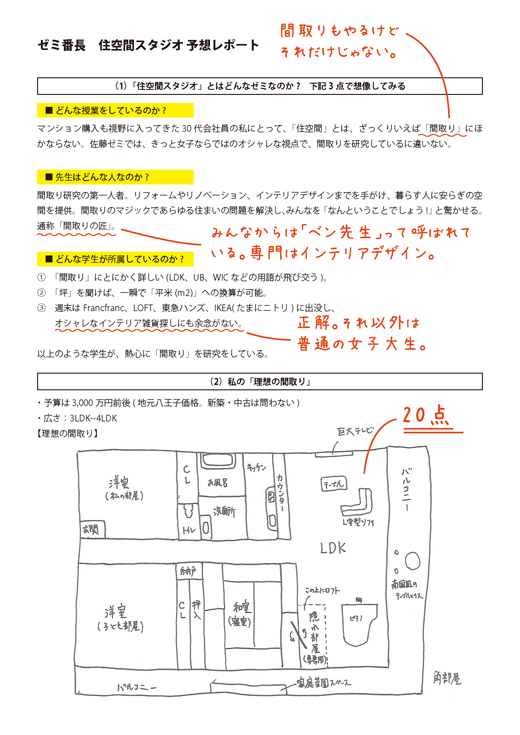 ゼミ番長　住空間スタジオ 予想レポート
間取りもやるけど
それだけじゃない。
（1）「住空間スタジオ」とはどんなゼミなのか？　下記 3 点で想像してみる
■ どんな授業をしているのか？
マンション購入も視野に入ってきた 30 代会社員の私にとって、「住空間」とは、ざっくりいえば「間取り」にほ
かならない。佐藤ゼミでは、きっと女子ならではのオシャレな視点で、間取りを研究しているに違いない。
■ 先生はどんな人なのか？
間取り研究の第一人者。リフォームやリノベーション、インテリアデザインまでを手がけ、暮らす人に安らぎの空
間を提供。間取りのマジックであらゆる住まいの問題を解決し、みんなを「なんということでしょう！」と驚かせる。
通称「間取りの匠」。
みんなからは「ベン先生」って呼ばれて
いる。専門はインテリアデザイン。
■ どんな学生が所属しているのか？
①　「間取り」にとにかく詳しい (LDK、UB、WIC などの用語が飛び交う )。
②　「坪」を聞けば、一瞬で「平米 (m2)」への換算が可能。
③　週末は Francfranc、LOFT、東急ハンズ、IKEA( たまにニトリ ) に出没し、
オシャレなインテリア雑貨探しにも余念がない。
正解。それ以外は
普通の女子大生。
以上のような学生が、熱心に「間取り」を研究をしている。
（2）私の「理想の間取り」
・予算は 3,000 万円前後 ( 地元八王子価格。新築・中古は問わない )
・広さ：3LDK--4LDK
【理想の間取り】
20点
巨大テレビ
洋室
(私の部屋)
CL
お風呂
キッチン
カウンター
テーブル
バルコニー
トイレ
洗面所
L字型ソファ
玄関
LDK
南国風の
テーブルとイス
洋室
(子ども部屋)
CL
押入
和室
(寝室)
この上にロフト
隠れ部屋
(書斎用)
ピアノ
バルコニー
家庭菜園スペース
角部屋